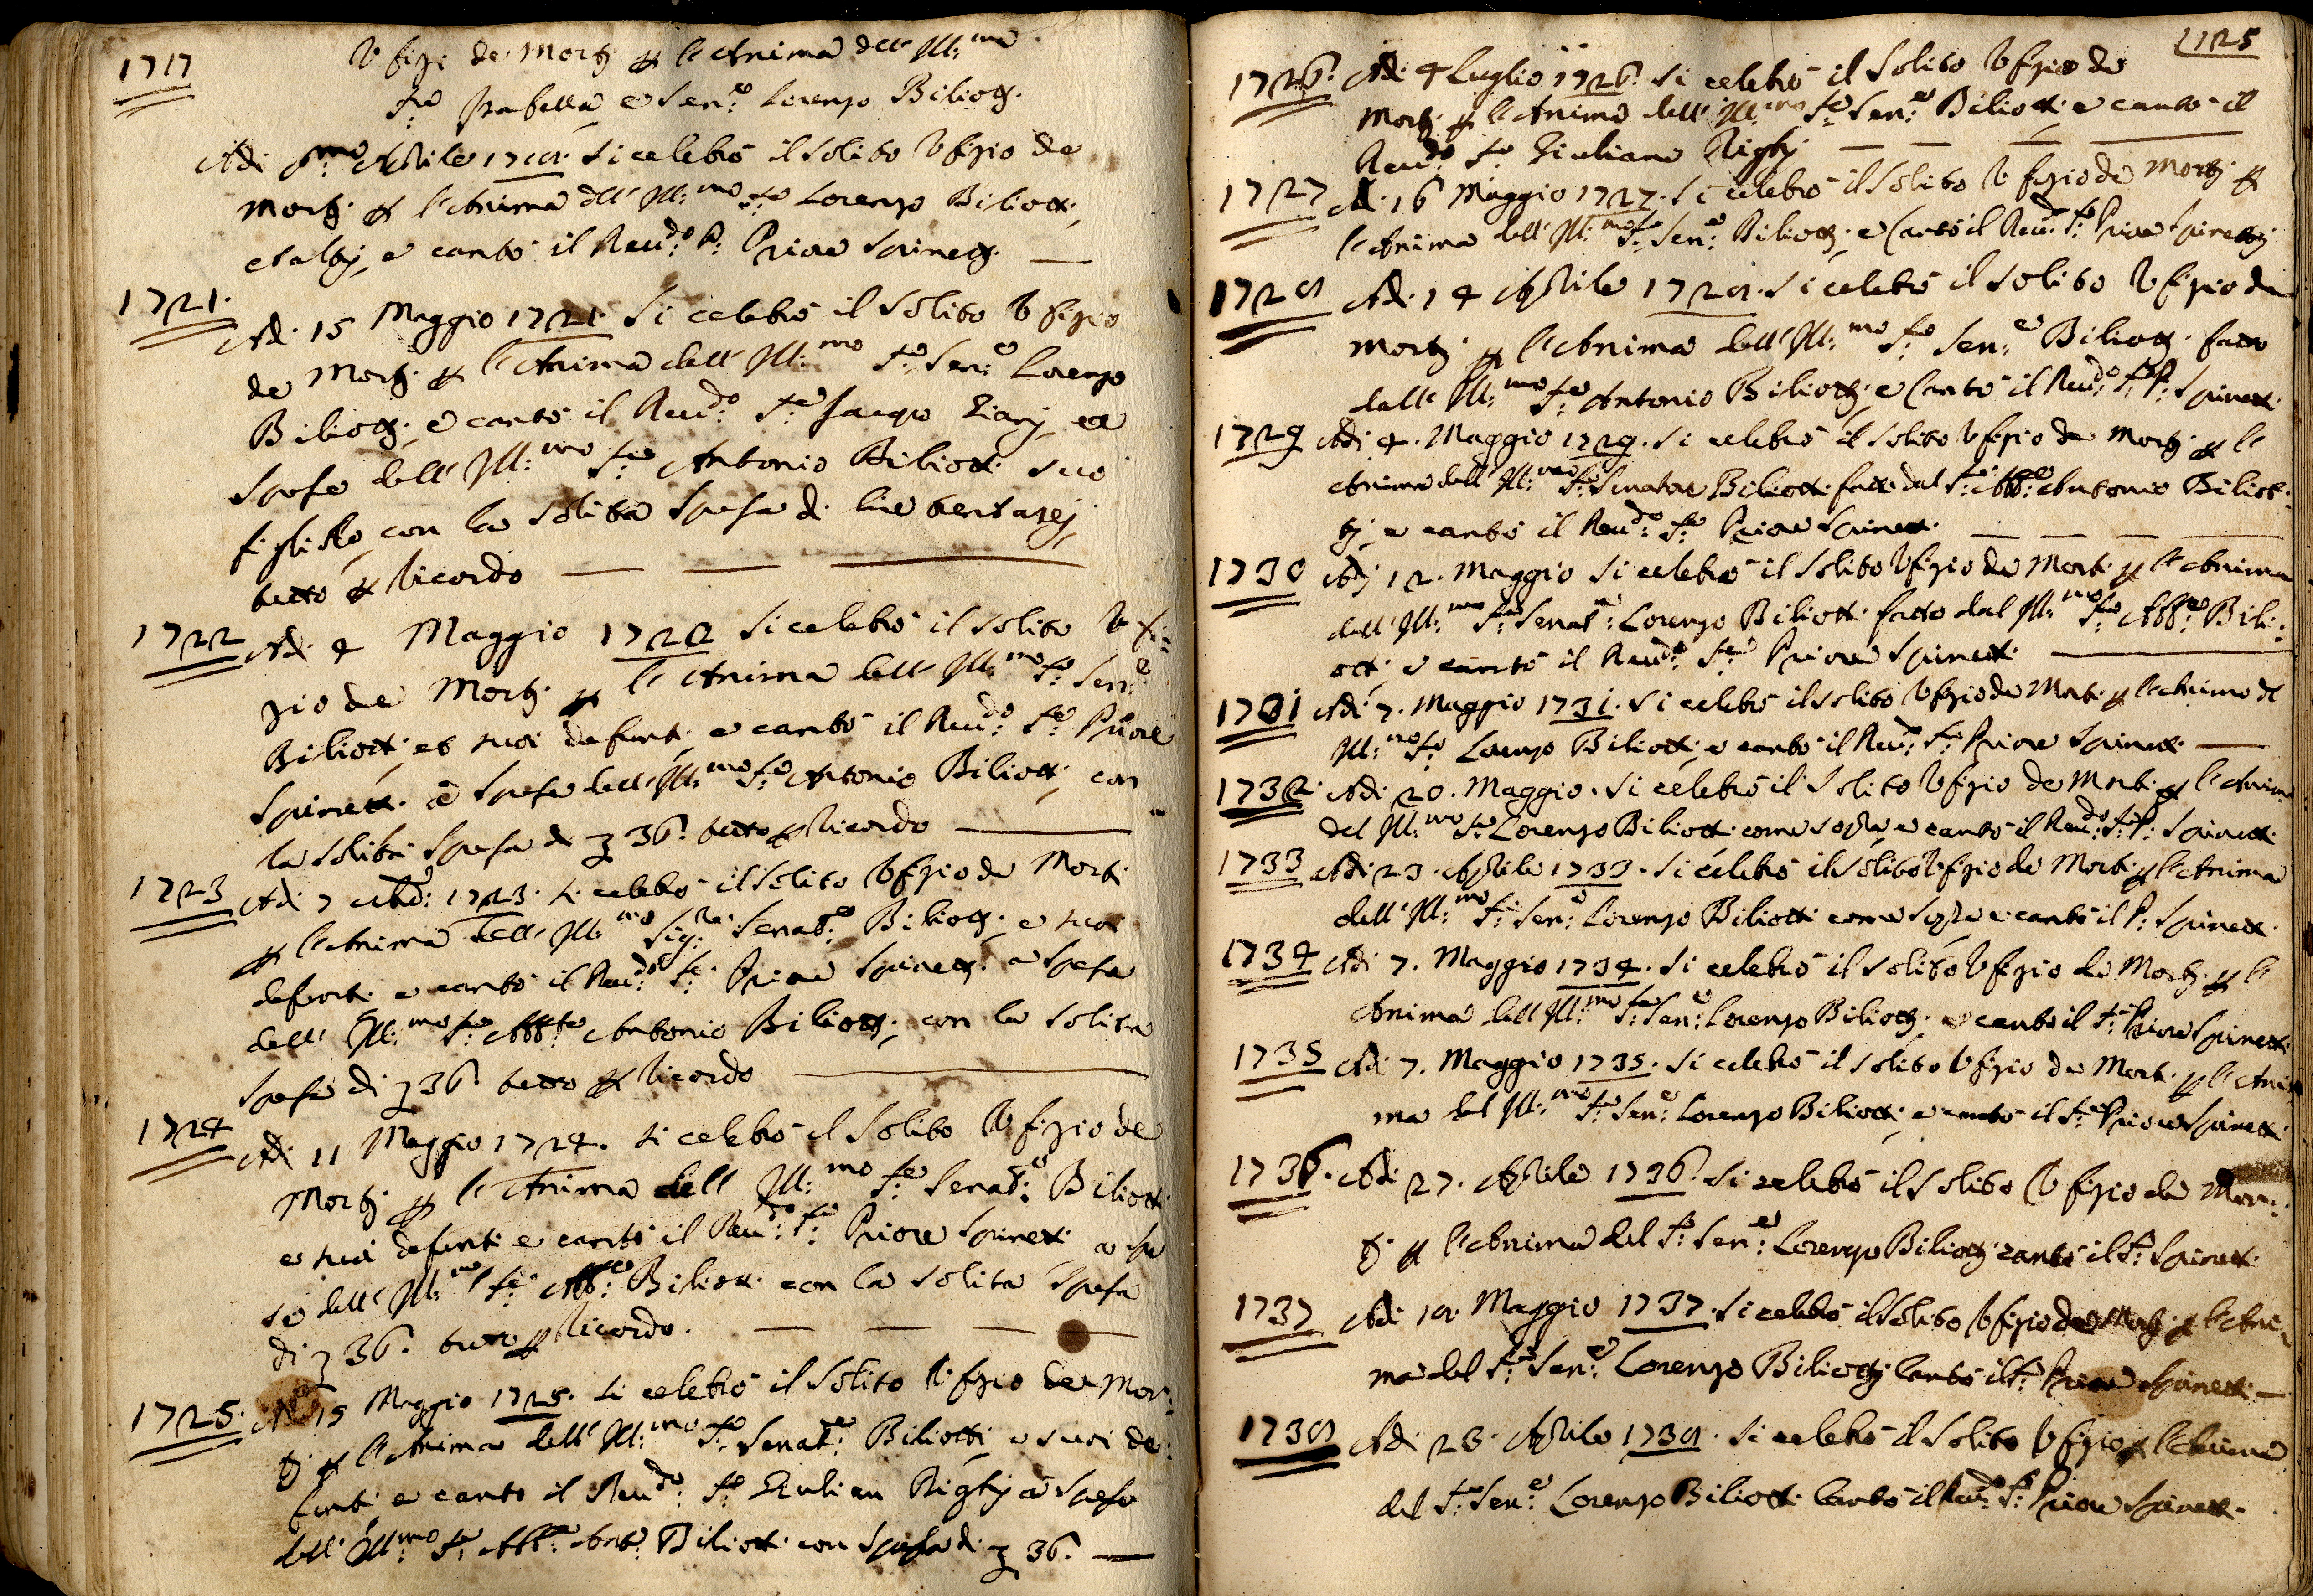 1717
Ufizi de Morti per l'Anima dell' Ill:mo
Sre Isabella e Sen:e Lorenzo Biliotti.
Adi pmo Aprile 1718. si celebrò il solito Ufizio de
Morti per l'Anima dell' Ill:mo Sre Lorenzo Biliotti,
et altri, e cantò il Reudo: P: Priore Spinetti. —
1721. Adi 15 Maggio 1721 Si celebrò il solito Ufizio
de Morti per l'Anima dell' Ill:mo Sre Sen:e Lorenzo
Biliotti, e cantò il Reudo: Sre Jacopo Ziari, a
Spese dell' Ill:mo Sre Antonio Biliotti suo
figliolo con la solita spesa di lire trentasej,
tutto per Ricordo — — —
1722 Adi 4 Maggio 1722 Si celebrò il solito Ufi:
zio de Morti. per l'Anima dell' Ill:mo Sre Sen:e
Biliotti, et suoi defunti, e cantò il Reudo: Sre Priore
Spinetti. a Spese dell' Ill:mo Sre Antonio Biliotti, con
la solita Spesa di ʒ 36. tutto per Ricordo —
1723 Adi 7 1723. si celebrò il solito Ufizio de Morti
per l'Anima dell' Ill:mo Sig:re Senat:e Biliotti, e suoi
defunti e cantò il Reudo: Sre Priore Spinetti. a Spese
dell' Ill:mo Sre Abbte Antonio Biliotti, con la solita
spesa di ʒ 36. tutto per Ricordo —
1724 Adi 11 Maggio 1724. si celebrò il Solito Ufizio de
Morti per l'Anima dell' Ill:mo Sre Senat:e Biliotti
e suoi defunti e cantò il Reudo: Sre Priore Spinetti a spe
se dell' Ill:mo Sre Abb:e Biliotti. con la solita Spesa
di ʒ 36. tutto per Ricordo. — — — —
1725. Adi 15 Maggio 1725. si celebrò il solito Ufizio de Mor:
ti per l'Anima dell' Ill:mo Sre Senat:e Biliotti, e suoi de:
funti e cantò il Reudo: Sre Giulian Righj a spese
dell' Ill:mo Sre Abb:e Ant: Biliotti con Spesa di ʒ 36. —
125
1726. Adi 4 Luglio 1726. si celebrò il Solito Ufizio de
Morti. per l'Anima dell' Ill:mo Sre Sen:e Biliotti, e cantò il
Reudo: Sre Giuliano Righj — — — —
1727 A di 16 Maggio 1727. si celebrò il solito Ufizio de Morti per
l'Anima dell' Ill:mo Sre Sen:e Biliotti, e Cantò il Reudo: Sre Priore Spinettj
1728 Adi. 14 Aprile 1728. si celebrò il solito Ufizio de
Morti. per l'Anima dell' Ill:mo Sre Sen:e Biliotti. fatto
dall' Ill:mo Sre Antonio Biliotti, e Cantò il Reudo: Sre P: Spinetti.
1729 Adi 4. Maggio 1729. si celebrò il solito Ufizio de Morti. per l'
Anima dell' Ill:mo Sre Senatore Biliotti fatto dal Sre Abb:e Antonio Biliot:
tj, e cantò il Reudo: Sre Priore Spinetti. — — — —
1730 Adj 12. Maggio si celebrò il solito Ufizio de Morti. per l'Anima
dell' Ill:mo Sre Senat:e Lorenzo Biliotti. fatto dal Ill:mo Sre Abb:e Bili:
otti, e cantò il Reudo: Sre Priore Spinetti —
1731 Adi 7. Maggio 1731. si celebrò il solito Ufizio de Morti. per l'Anima del
Ill:mo Sre Lorenzo Biliotti, e cantò il Reudo: Sre Priore Spinetti —
1732. Adi 20. Maggio. si celebrò il solito Ufizio de Morti. per l'Anima
del Ill:mo Sre Lorenzo Biliotti come sopra e cantò il Reudo: Sre P: Spinetti.
1733 Adi 23. Aprile 1733. si celebrò il solito Ufizio de Morti. per l'Anima
dell' Ill:mo Sre Sen:e Lorenzo Biliotti come sopra e cantò il P: Spinetti.
1734 Adi 7. Maggio 1734. si celebrò il solito Ufizio de Morti. per l'
Anima dell' Ill:mo Sre Sen:e Lorenzo Biliotti, e cantò il Sre Priore Spinetti.
1735 Adi 7. Maggio 1735. si celebrò il solito Ufizio de Morti. per l'Ani
ma del Ill:mo Sre Sen:e Lorenzo Biliotti, e cantò il Sre Priore Spinetti.
1736. Adi 27. Aprile 1736. si celebrò il solito Ufizio de Mor:
ti. per l'Anima del Sre Sen:e Lorenzo Biliotti cantò il Sre Spinetti.
1737 Adi 18. Maggio 1737. si celebrò il solito Ufizio de Morti. per l'Ani
ma del Sre Sen:e Lorenzo Biliotti Cantò il Sre Priore Spinetti —
1738 Adi 23. Aprile 1738. si celebrò il solito Ufizio per l'Anima
del Sre Sen:e Lorenzo Biliotti Cantò il Reudo Sre Priore Spinetti.